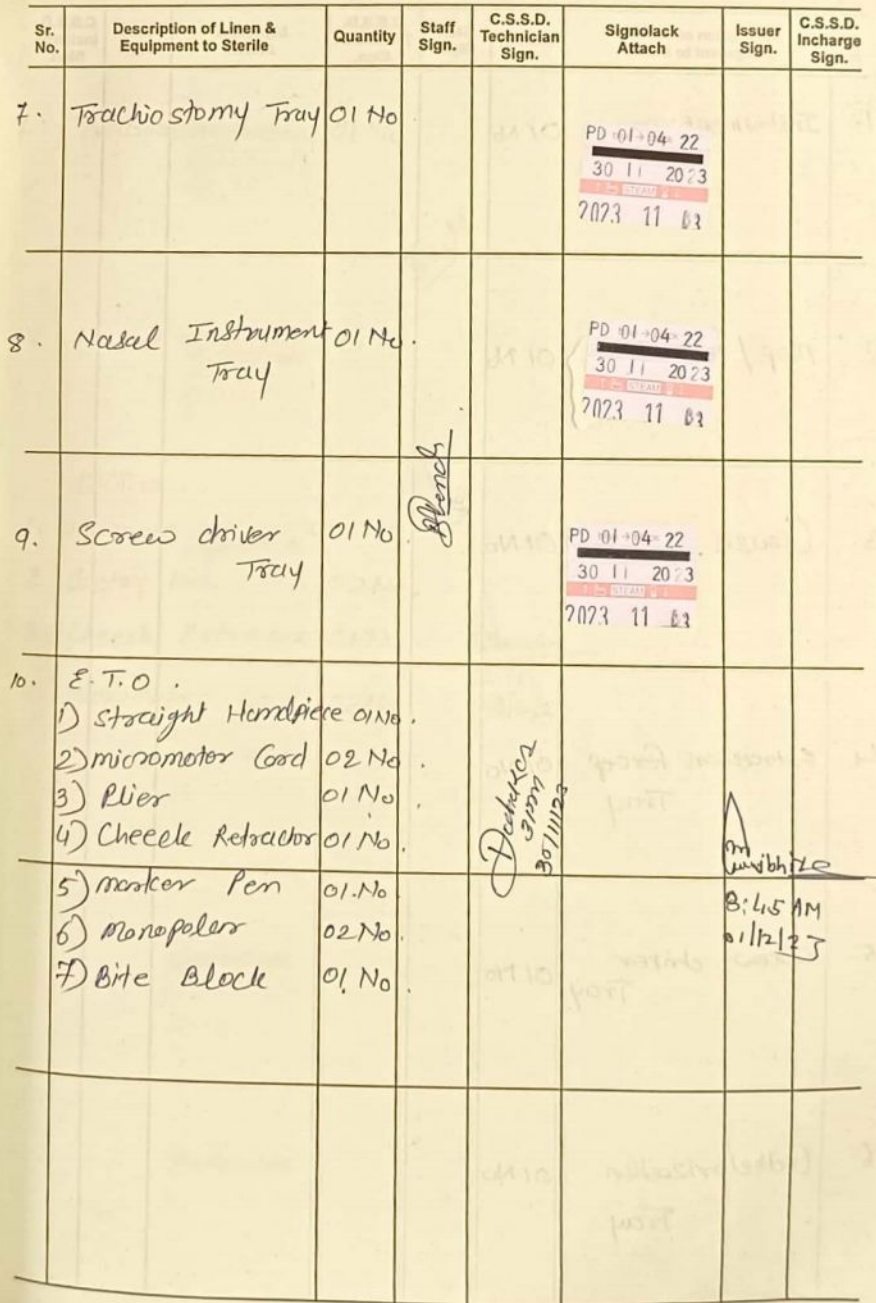 Sr. No. Description of Linen & Equipment to Sterile Quantity Staff Sign. C.S.S.D. Technician Sign. Signolack Attach Issuer Sign. C.S.S.D. Incharge Sign.
7. Trachiostomy Tray 01 No
PD 01 04 22
30 11 2023
STEAM
2023 11 03
8. Nasal Instrument 01 No.
Tray
PD 01 04 22
30 11 2023
STEAM
2023 11 03
9. Screw driver 01 No.
Tray
PD 01 04 22
30 11 2023
STEAM
2023 11 03
10. E.T.O.
1) Straight Handpiece 01 No.
2) micromotor Cord 02 No.
3) Plier 01 No.
4) Cheeck Retractor 01 No.
3pm
30/11/23
5) marker Pen 01. No
6) monopolar 02 No.
7) Bite Block 01. No.
8:45 AM
01/12/23